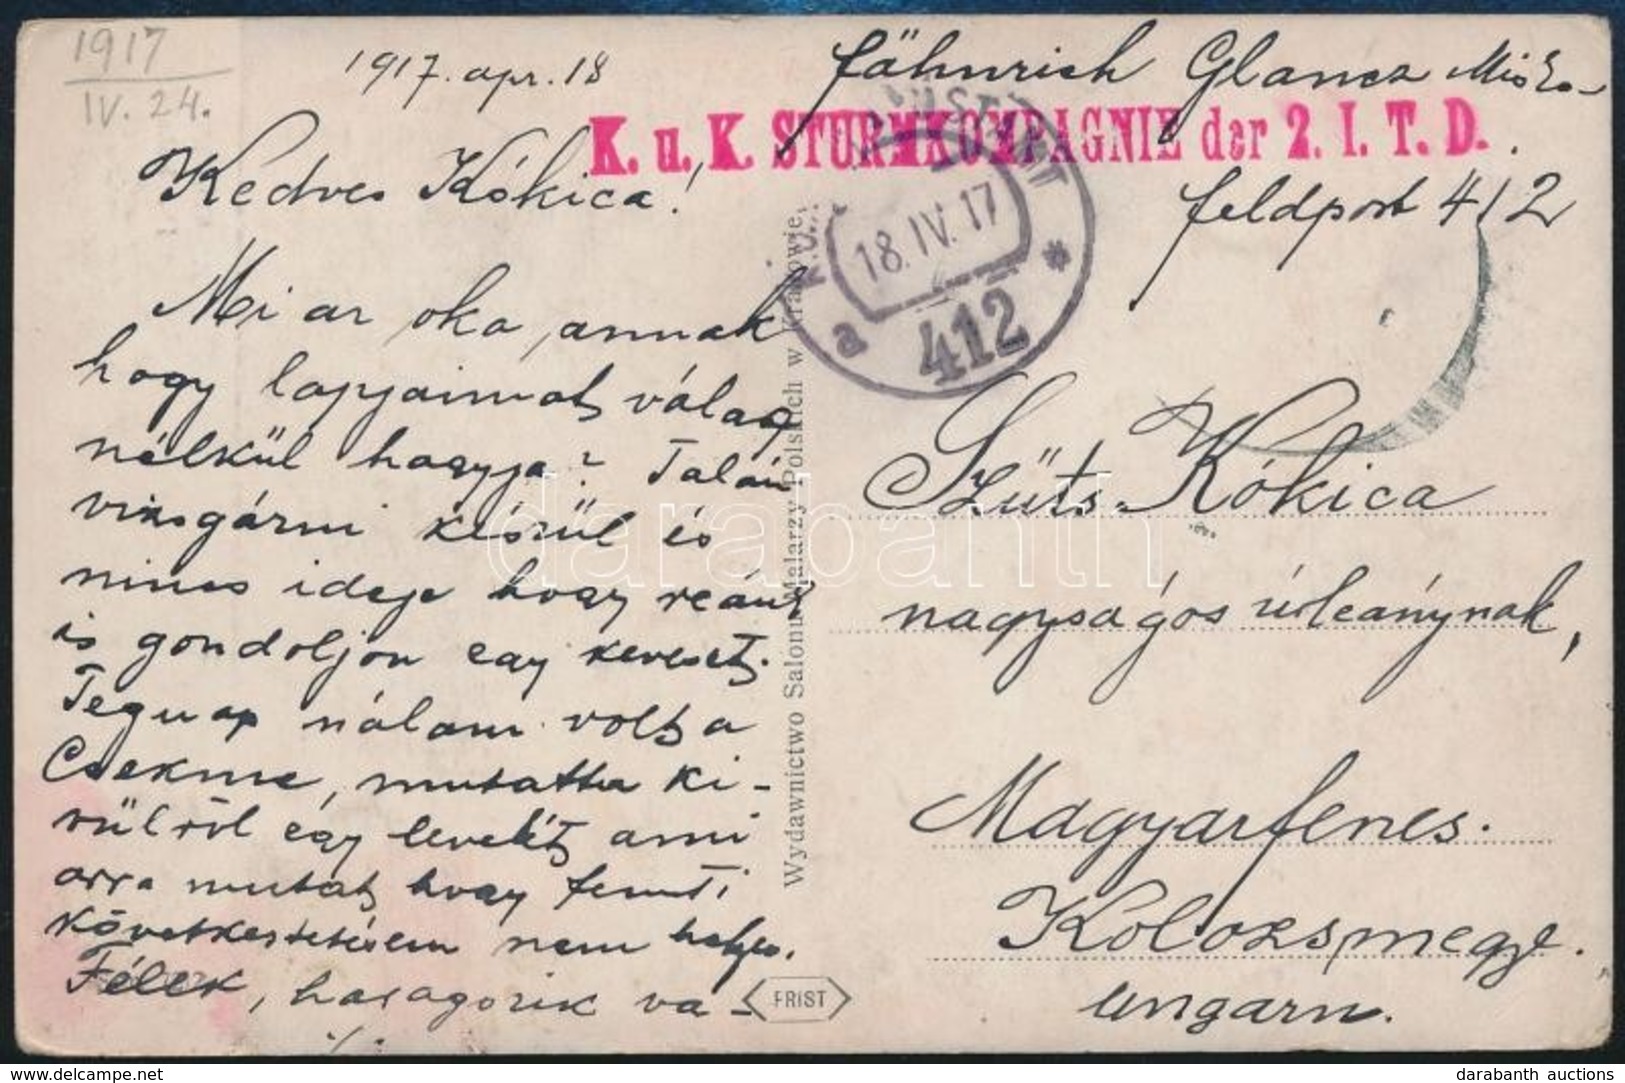 1917
IV. 24.
1917. apr. 18
Kedves Kókica!
Mi ar oka, annak
hogy lapjaimat válasz
nélkül hagyja? Talán
vizsgárni készül és
nincs ideje hogy reánk
is gondoljon egy keveset.
Tegnap nálam volt a
Csekme, mutatta ki-
vülröl egy levelét ami
arra mutat hogy fenti
következtetésem nem helyes.
Félek, haragszik va-
./.
fähnrich Glancz Miska
K. u. K. STURMKOMPAGNIE der 2. I. T. D.
feldpost 412
18. IV. 17
a 412 *
Szüts Kókica
nagyságos úrleánynak,
Magyarfenes.
Kolozsmegye.
Ungarn.
Wydawnictwo Salonu Malarzy Polskich w Krakowie.
FRIST
darabanth
darabanth auctions
delcampe.net